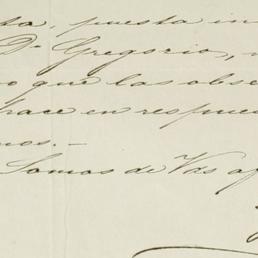 ta, puesta in
Dn Gregorio,
o que las obse
hace en respues
mos.—
Somos de Vds af